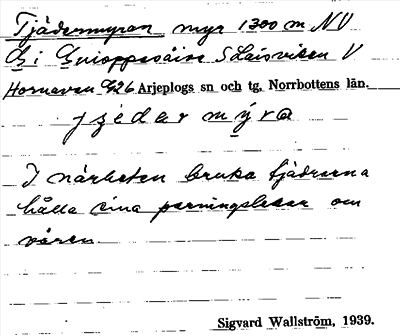 Tjädermyran myr 1300 m NV
G i Guioppesåive S Laisviken V
Hornavan G26 Arjeplogs sn och tg, Norrbottens län.
I närheten bruka tjädrarna
hålla sina parningslekar om
våren.
Sigvard Wallström, 1939.